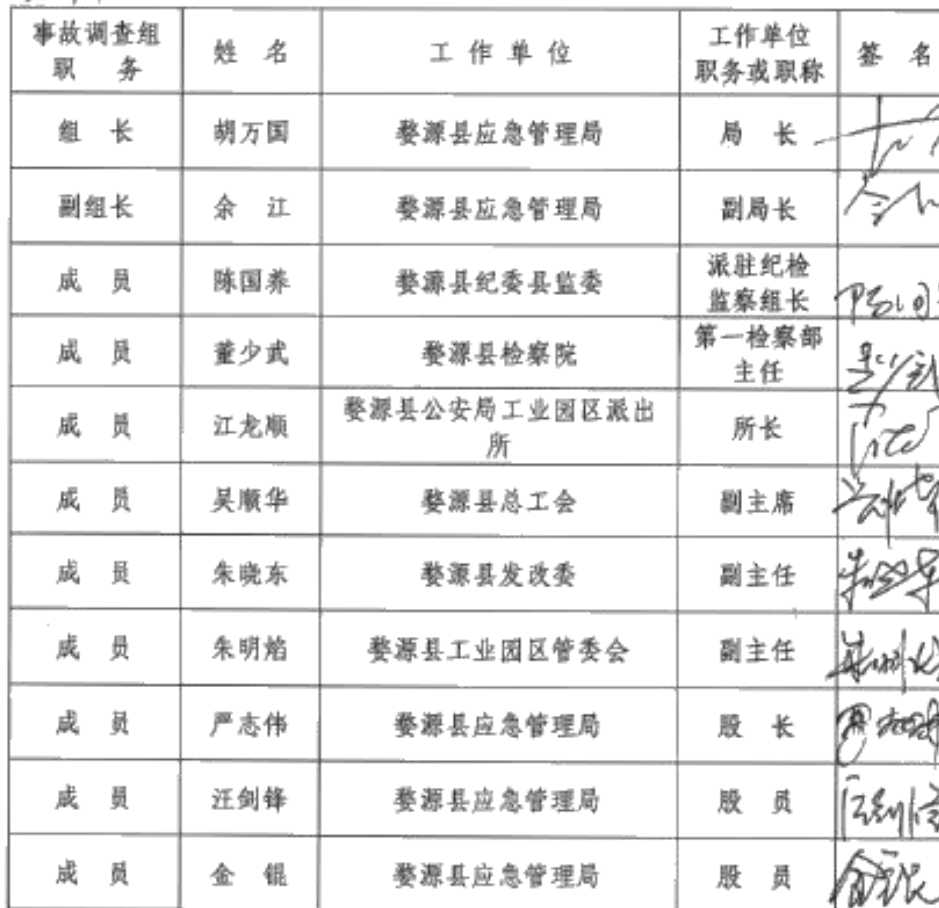 事故调查组 姓 名 工 作 单 位 工作单位 签 名
职 务 职务或职称
组 长 胡万国 婺源县应急管理局 局 长
副组长 余 江 婺源县应急管理局 副局长
成 员 陈国养 婺源县纪委县监委 派驻纪检
监察组长
成 员 董少武 婺源县检察院 第一检察部
主任
成 员 江龙顺 婺源县公安局工业园区派出 所长
所
成 员 吴顺华 婺源县总工会 副主席
成 员 朱晓东 婺源县发改委 副主任
成 员 朱明焰 婺源县工业园区管委会 副主任
成 员 严志伟 婺源县应急管理局 股 长
成 员 汪剑锋 婺源县应急管理局 股 员
成 员 金 锟 婺源县应急管理局 股 员